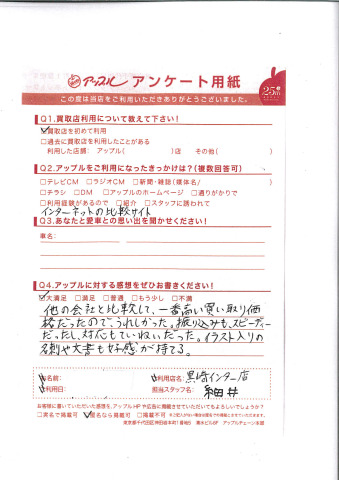 アップル アンケート用紙
25th
この度は当店をご利用いただきありがとうございました。
Q1.買取店利用について教えて下さい!
☑買取店を初めて利用
□過去に買取店を利用したことがある
利用した店舗: アップル( )店 その他( )
Q2.アップルをご利用になったきっかけは?(複数回答可)
□テレビCM □ラジオCM □新聞・雑誌(媒体名/ )
□チラシ □DM □アップルのホームページ □通りがかりで
□利用経験があるので □紹介 □スタッフに誘われて
インターネットの比較サイト
Q3.あなたと愛車との思い出を聞かせください!
車名:
Q4.アップルに対する感想をぜひお書きください!
☑大満足 □満足 □普通 □もう少し □不満
他の会社と比較して、一番高い買い取り価
格だったので、うれしかった。振り込みも、スピーディー
だったし、対応もていねいだった。イラスト入りの
名刺や文書も好感が持てる。
お名前:
ご利用日:
ご利用店名: 黒崎インター店
担当スタッフ名: 細井
お客様に書いていただいた感想を、アップルHPや広告に掲載させていただいてもよろしいでしょうか?
□実名で掲載可 ☑匿名なら掲載可 □掲載不可
東京都千代田区神田岩本町1番地5 清水ビル6F アップルチェーン本部